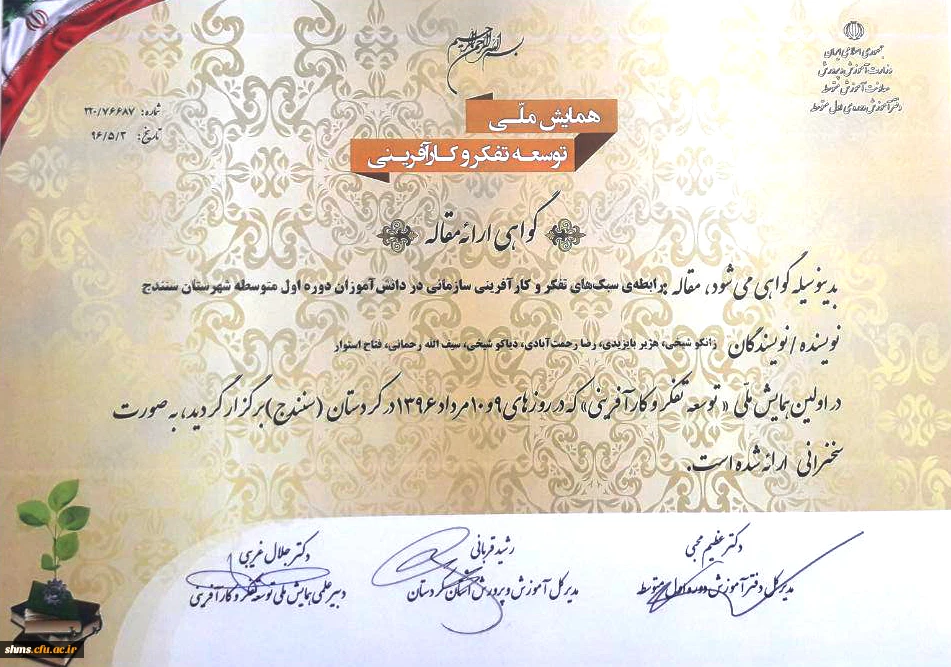 بسم الله الرحمن الرحیم
جمهوری اسلامی ایران
وزارت آموزش و پرورش
معاونت آموزش متوسطه
دفتر آموزش دوره‌ی اول متوسطه
شماره: ۲۲۰/۷۶۶۸۷
تاریخ: ۹۶/۵/۳
همایش ملّی
توسعه تفکر و کارآفرینی
گواهی ارائه مقاله
بدینوسیله گواهی می شود، مقاله رابطه‌ی سبک‌های تفکر و کارآفرینی سازمانی در دانش‌آموزان دوره اول متوسطه شهرستان سنندج
نویسنده / نویسندگان زانکو شیخی، هژیر بایزیدی، رضا رحمت‌آبادی، دیاکو شیخی، سیف الله رحمانی، فتاح استوار
در اولین همایش ملّی «توسعه تفکر و کارآفرینی» که در روزهای ۹ و ۱۰ مرداد ۱۳۹۶ در کردستان (سنندج) برگزار گردید، به صورت
سخنرانی ارائه شده است.
دکتر عظیم محبی
مدیر کل دفتر آموزش دوره اول متوسطه
رشید قربانی
مدیر کل آموزش و پرورش استان کردستان
دکتر جلال غریبی
دبیر علمی همایش ملی توسعه تفکر و کارآفرینی
shms.cfu.ac.ir